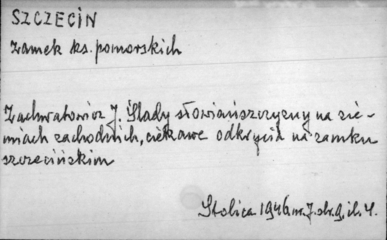 SZCZECIN
zamek ks. pomorskich
Zachwatowicz J. Ślady słowiańszczyzny na zie-
miach zachodnich, ciekawe odkrycia na zamku
szczecińskim
Stolica 1946. nr. 7. str. 9, il. 4.